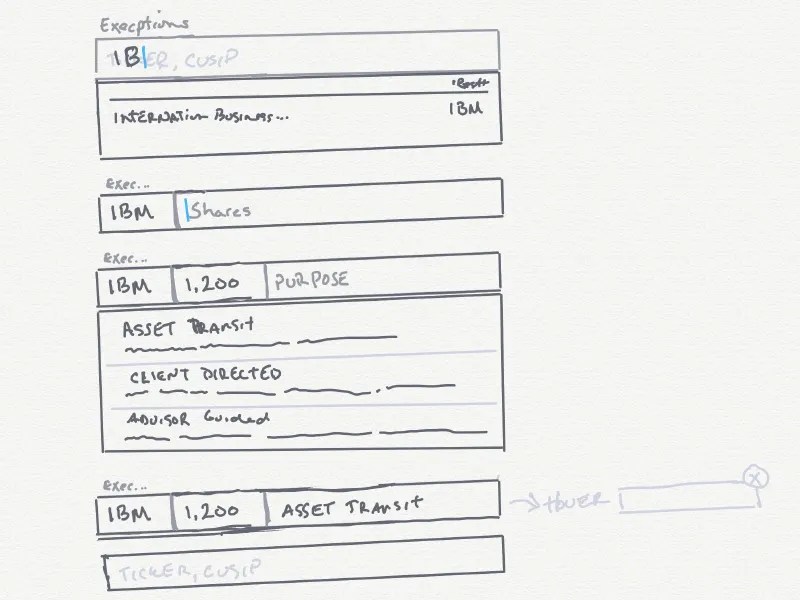 Execptions
IB
TICKER, CUSIP
INTERNATION BUSINESS... IBM
Exec...
IBM Shares
Exec...
IBM 1,200 PURPOSE
ASSET TRANSIT
CLIENT DIRECTED
ADVISOR Guided
Exec...
IBM 1,200 ASSET TRANSIT → HOVER X
TICKER, CUSIP